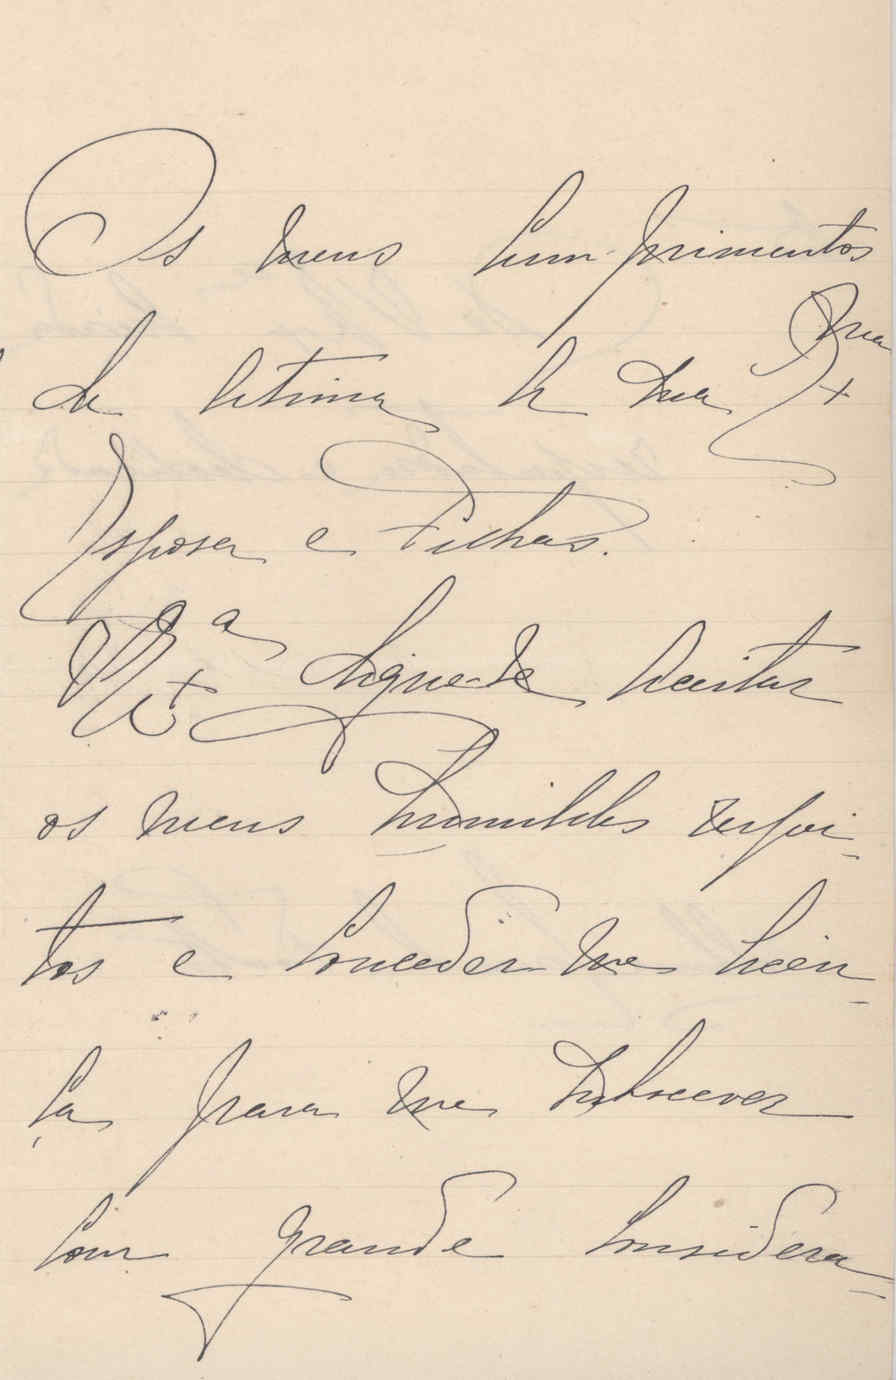 Os meus cumprimentos
de estima a sua Exma
Esposa e Filhas.
V. Exa digne-se Aceitar
os meus humildes respei-
tos e conceder-me licen-
ça para me subscrever
com grande considera-